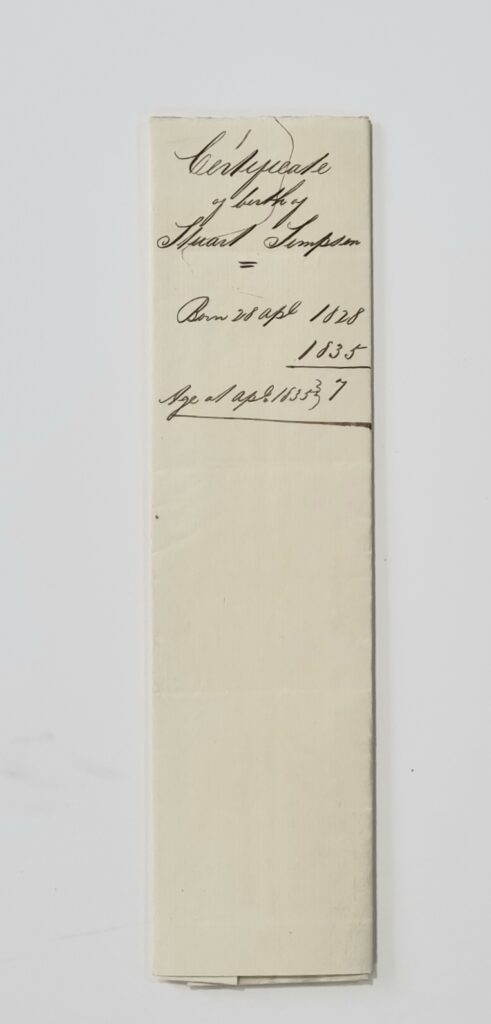 Certificate
of birth of
Stuart Simpson
=
Born 28 Apl 1828
1835
Age at Apl. 1835} 7